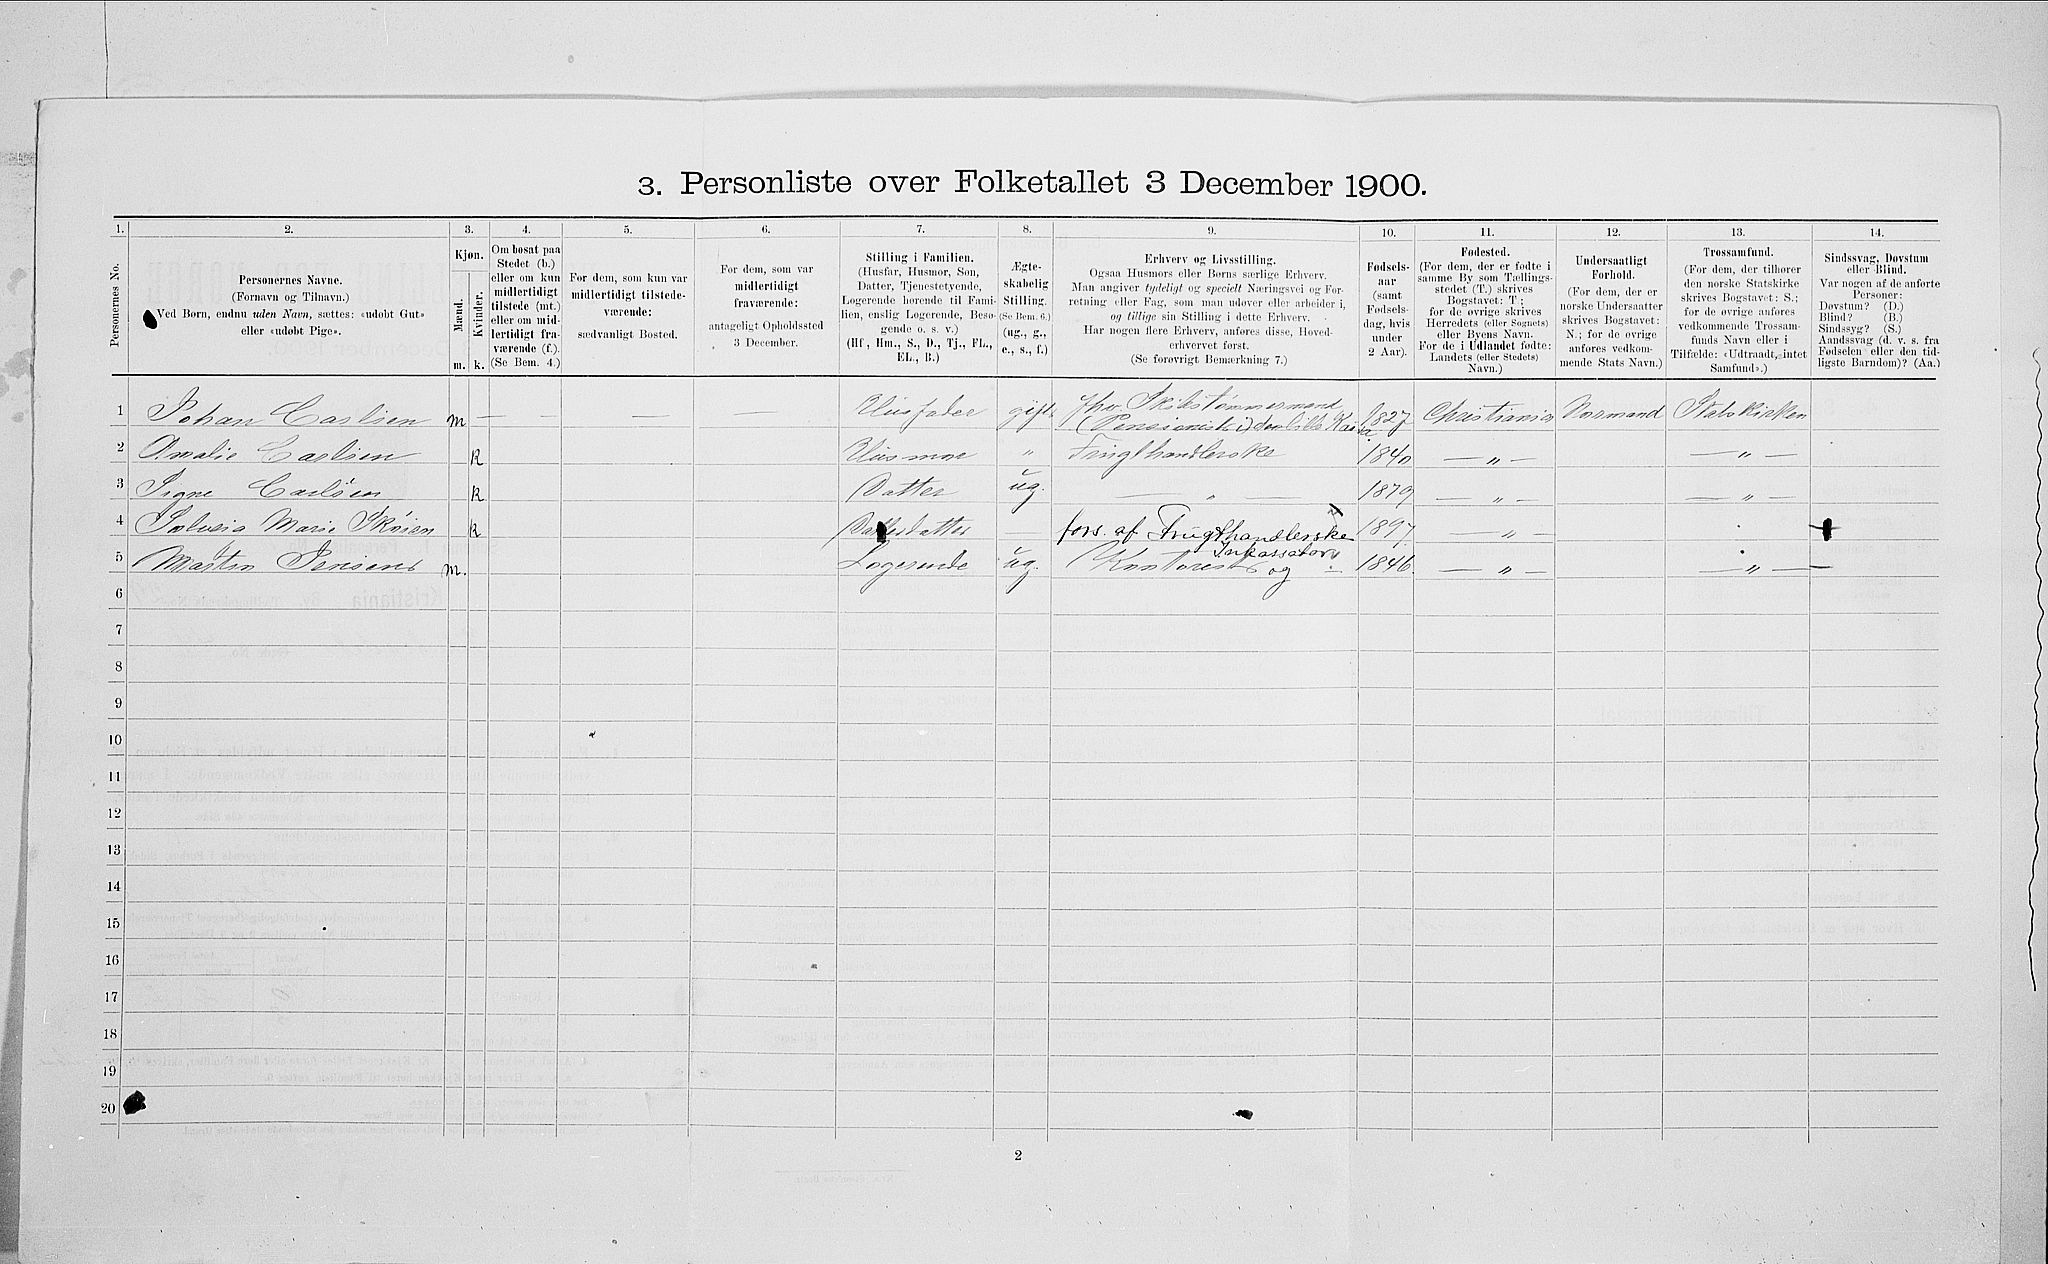 3. Personliste over Folketallet 3 December 1900.
1. 2. 3. 4. 5. 6. 7. 8. 9. 10. 11. 12. 13. 14.
Personernes No.
Personernes Navne.
(Fornavn og Tilnavn.)
Ved Børn, endnu uden Navn, sættes: «udøbt Gut»
eller «udøbt Pige».
Kjøn.
Mænd.
Kvinder.
m. k.
Om bosat paa
Stedet (b.)
eller om kun
midlertidigt
tilstede (mt.)
eller om mid-
lertidigt fra-
værende (f.).
(Se Bem. 4.)
For dem, som kun var
midlertidigt tilstede-
værende:
sædvanligt Bosted.
For dem, som var
midlertidigt
fraværende:
antageligt Opholdssted
3 December.
Stilling i Familien.
(Husfar, Husmor, Søn,
Datter, Tjenestetyende,
Logerende hørende til Fami-
lien, enslig Logerende, Besø-
gende o. s. v.)
(Hf, Hm., S., D., Tj., FL.,
EL., B.)
Ægte-
skabelig
Stilling.
(Se Bem. 6.)
(ug., g.,
e., s., f.)
Erhverv og Livsstilling.
Ogsaa Husmors eller Børns særlige Erhverv.
Man angiver tydeligt og specielt Næringsvei og For-
retning eller Fag, som man udøver eller arbeider i,
og tillige sin Stilling i dette Erhverv.
Har nogen flere Erhverv, anføres disse, Hoved-
erhvervet først.
(Se forøvrigt Bemærkning 7.)
Fødsels-
aar
(samt
Fødsels-
dag, hvis
under
2 Aar).
Fødested.
(For dem, der er fødte i
samme By som Tællings-
stedet (T.) skrives
Bogstavet: T;
for de øvrige skrives
Herredets (eller Sognets)
eller Byens Navn.
For de i Udlandet fødte:
Landets (eller Stedets)
Navn.)
Undersaatligt
Forhold.
(For dem, der er
norske Undersaatter
skrives Bogstavet:
N.; for de øvrige
anføres vedkom-
mende Stats Navn.)
Trossamfund.
(For dem, der tilhører
den norske Statskirke
skrives Bogstavet: S.;
for de øvrige anføres
vedkommende Trossam-
funds Navn eller i
Tilfælde: «Udtraadt, intet
Samfund».)
Sindssvag, Døvstum
eller Blind.
Var nogen af de anførte
Personer:
Døvstum? (D.)
Blind? (B.)
Sindssyg? (S.)
Aandssvag (d. v. s. fra
Fødselen eller den tid-
ligste Barndom)? (Aa.)
1 Johan Carlsen m — — — Husfader gift fhv. Skibstømmermand 1827 Christiania Normand Statskirken
(Pensionist i)
2 Amalie Carlsen K Husmor " Frugthandlerske 1840 — " — — " —
3 Signe Carlsen K Datter ug. — " — 1879 — " — — " —
4 Solveig Marie Skøien K Datterdatter — fors. af Frugthandlerske 1897 — " —
5 Martin Jensen m. Logerende ug. Kontorist og Inkassator 1846. — " — — " —
6
7
8
9
10
11
12
13
14
15
16
17
18
19
20
2